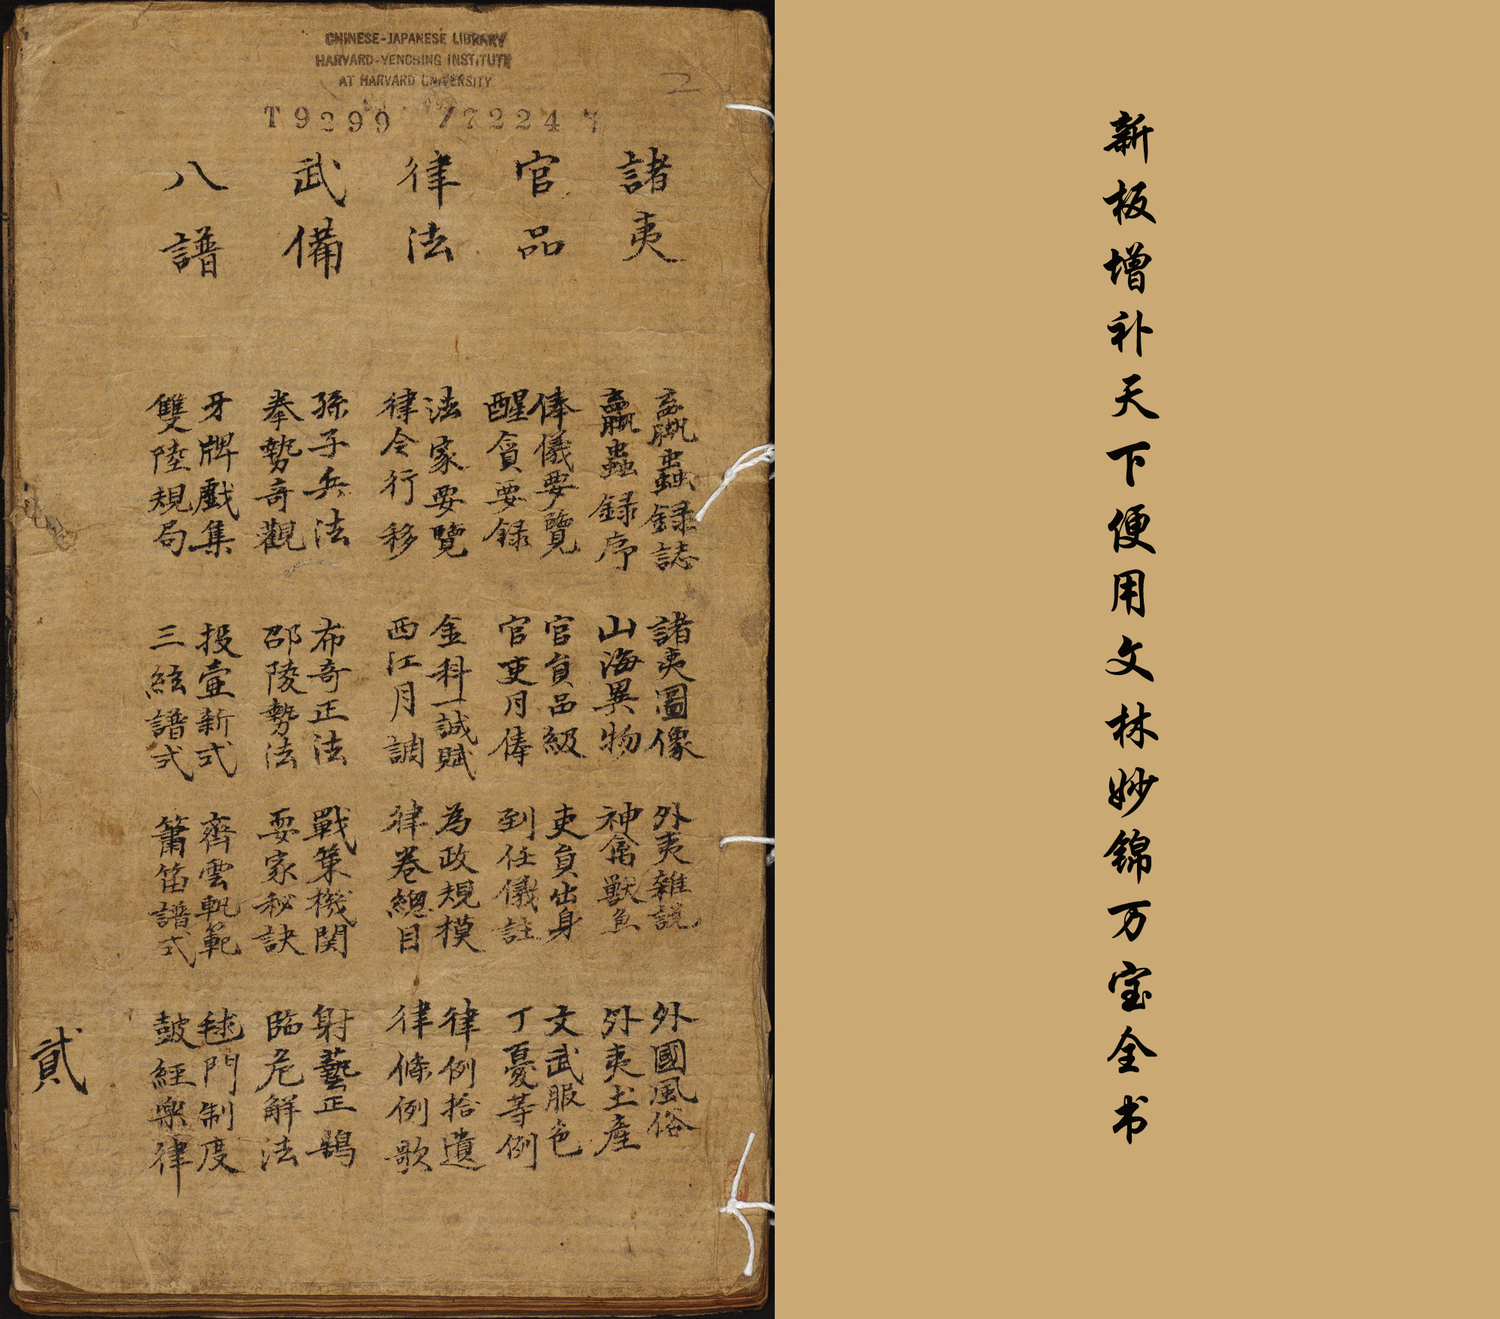 CHINESE-JAPANESE LIBRARY
HARVARD-YENCHING INSTITUTE
AT HARVARD UNIVERSITY
T 9299 / 7224
諸夷
嬴蟲録誌 諸夷圖像 外夷雜説 外國風俗
蠃蟲録序 山海異物 神禽獸魚 外夷土產
官品
俸儀要覽 官員品級 吏員出身 文武服色
醒貪要録 官吏月俸 到任儀註 丁憂等例
律法
法家要覽 金科一誠賦 為政規模 律例拾遺
律令行移 西江月調 律卷總目 律條例歌
武備
孫子兵法 布奇正法 戰策機関 射藝正鵠
拳勢奇觀 邵陵勢法 耍家秘訣 臨危解法
八譜
牙牌戲集 投壺新式 齊雲軌範 毬門制度
雙陸規局 三絃譜式 簫笛譜式 皷經樂律
貳
新板增补天下便用文林妙锦万宝全书